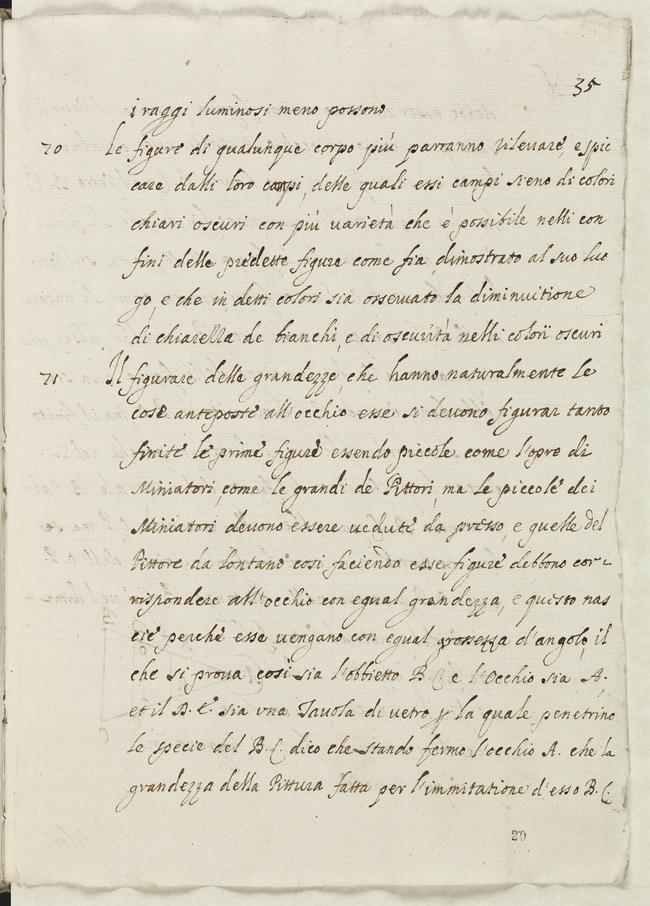 35
i raggi luminosi meno possono
70 Le figure di qualunque corpo più parranno rilevare, e spic
care dalli loro campi, delle quali essi campi sieno di colori
chiari oscuri con più varietà che è possibile nelli con
fini delle predette figure come fia dimostrato al suo luo
go, e che in detti colori sia osservato la diminuitione
di chiarezza de bianchi, e di oscurità nelli colorii oscuri
71 Il figurare delle grandezze, che hanno naturalmente le
cose anteposte all'occhio esse si devono figurar tanto
finite le prime figure essendo piccole come l'opre di
Miniatori, come le grandi de Pittori, ma le piccole dei
Miniatori devono essere vedute da presso, e quelle del
Pittore da lontano cosi faciendo esse figure debbono cor-
rispondere all'occhio con egual grandezza, e questo nas
cie perche esse vengano con egual grossezza d'angolo, il
che si prova cosi sia l'obbietto B.C. e l'occhio sia A.
et il D.E. sia una Tavola di vetro p la quale penetrino
le specie del B.C. dico che stando fermo l'occhio A. che la
grandezza della Pittura fatta per l'immitatione d'esso B.C.
20